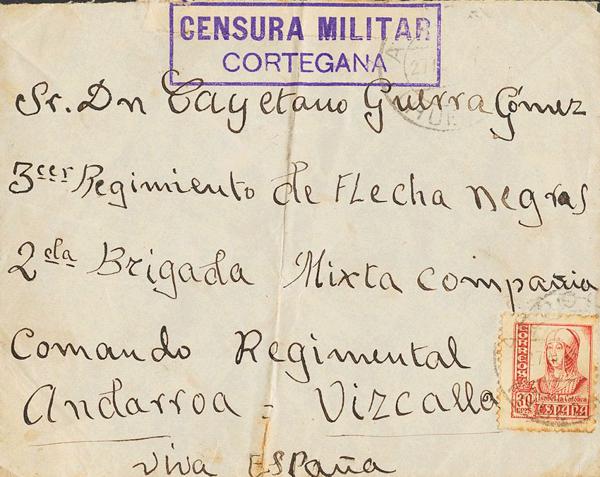 CENSURA MILITAR
CORTEGANA
Sr. Dn Cayetano Guerra Gómez
3cer Regimiento de Flecha negras
2da Brigada Mixta Compañia
Comando Regimental
Andarroa = Vizcalla
Viva España
CORREOS
30
CTS
Isabel la Católica
ESPAÑA